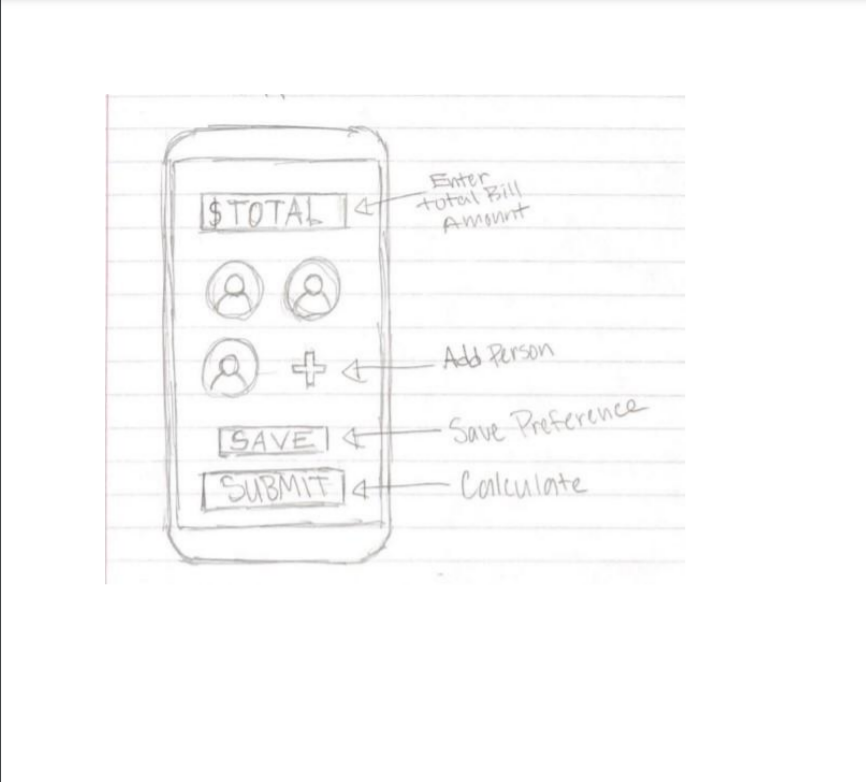 $ TOTAL
Enter
total Bill
Amount
Add Person
SAVE
Save Preference
SUBMIT
Calculate